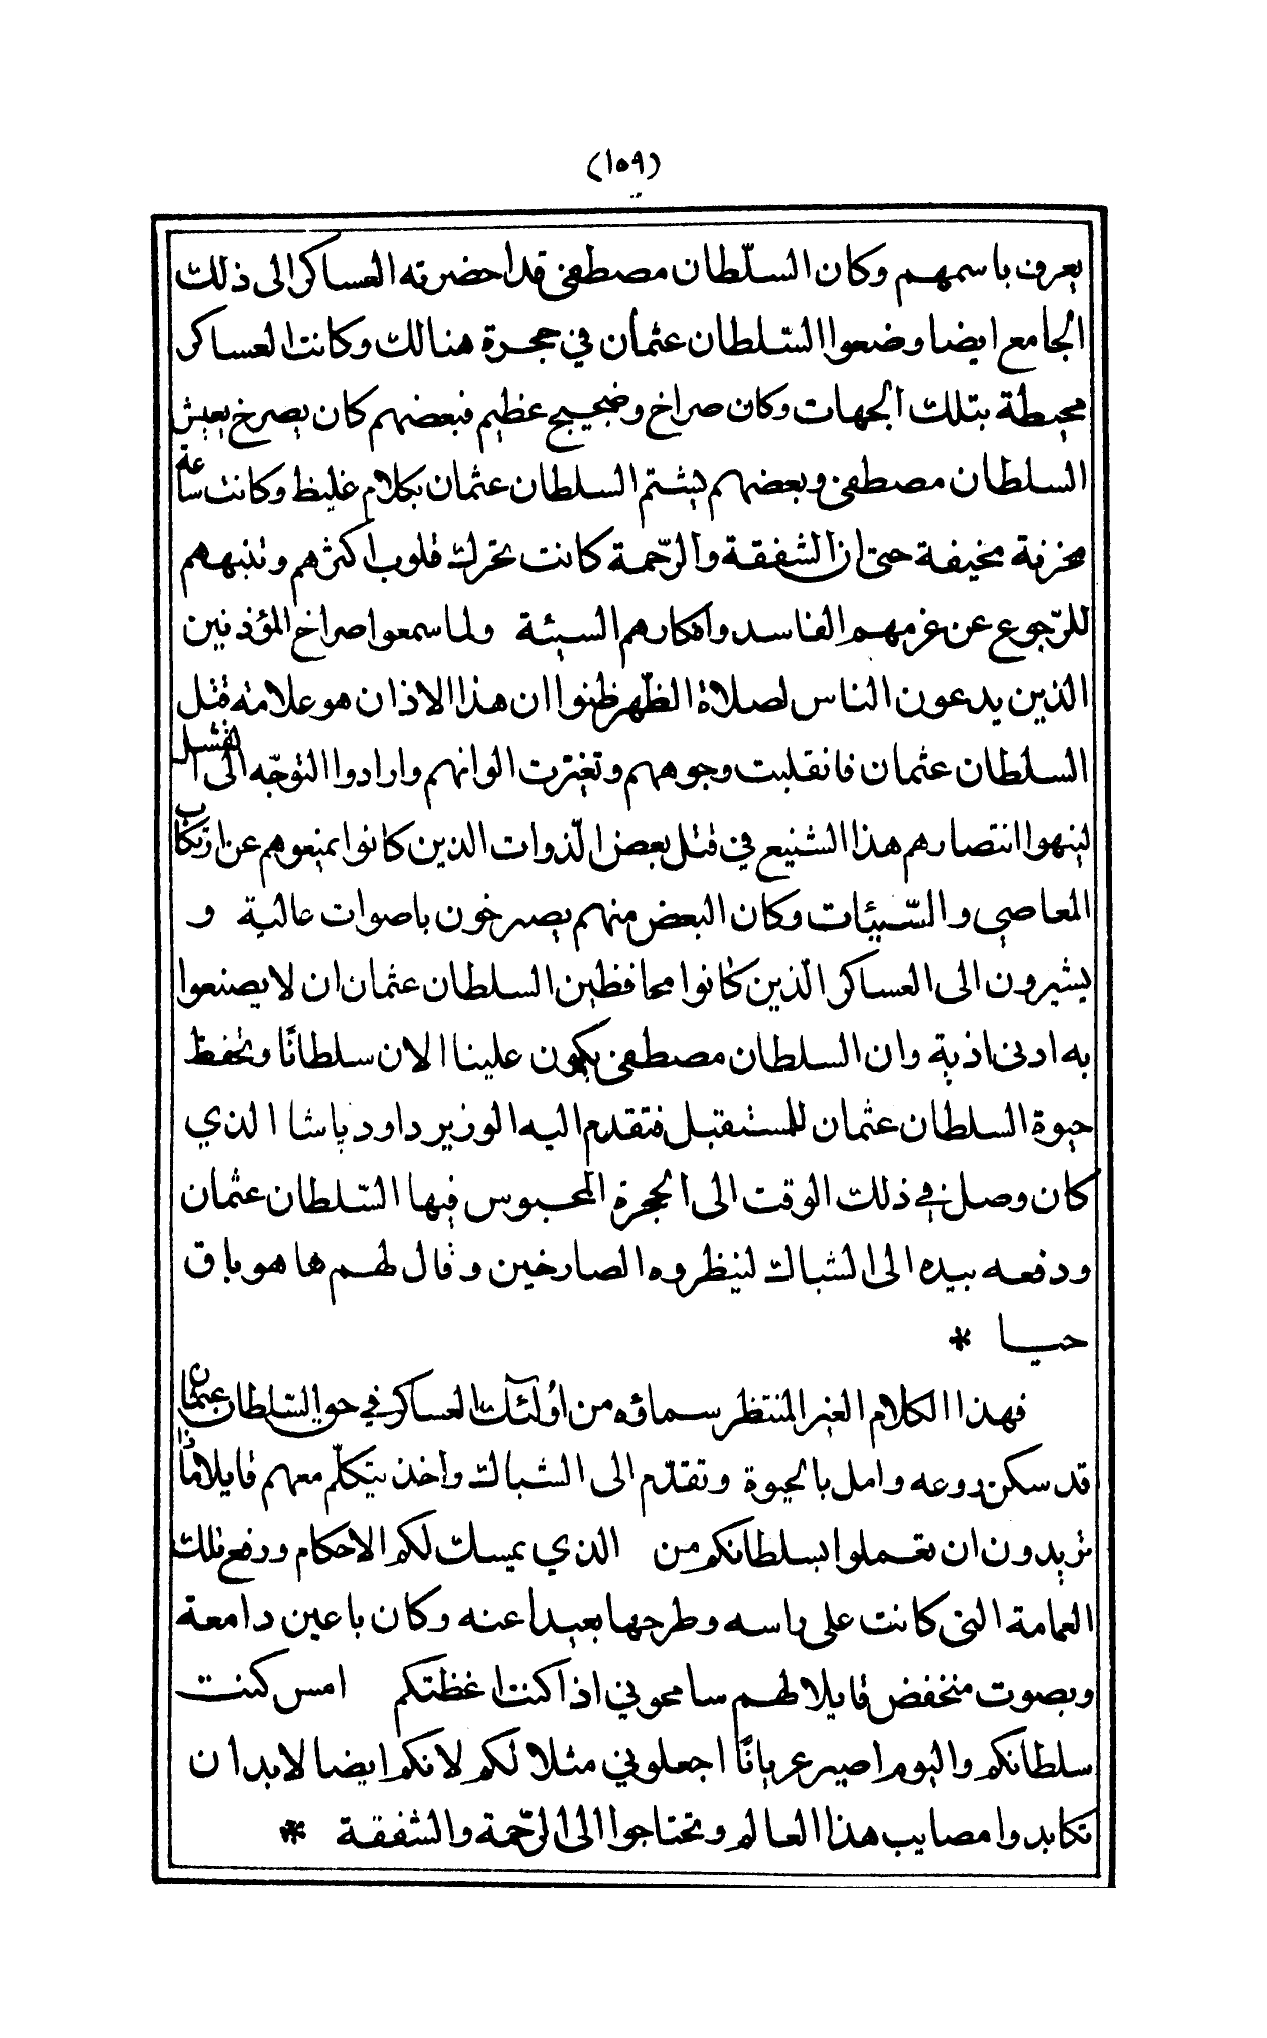 (١٥٩)
يعرف باسمهم وكان السلّطان مصطفى قد احضرته العساكر الى ذلك
الجامع ايضا وضعوا السّلطان عثمان في حجرة هنالك وكانت العساكر
محيطة بتلك الجهات وكان صراخ وضجيج عظيم فبعضهم كان يصرخ يعيش
السلطان مصطفى وبعضهم يشتم السلطان عثمان بكلام غليظ وكانت ساعة
محزنة مخيفة حتى ان الشفقة والرّحمة كانت تحرك قلوب اكثرهم وتنبههم
للرّجوع عن عزمهم الفاسد وافكارهم السيئة ولما سمعوا صراخ المؤذنين
الذين يدعون الناس لصلاة الظّهر ظنوا ان هذا الاذان هو علامة قتل
السلطان عثمان فانقلبت وجوههم وتغيّرت الوانهم وارادوا التوجّه الى القشل
لينهوا انتصارهم هذا الشنيع في قتل بعض الذّوات الذين كانوا يمنعوهم عن ارتكاب
المعاصي والسّيئات وكان البعض منهم يصرخون باصوات عالية و
يشيرون الى العساكر الّذين كانوا محافظين السلطان عثمان ان لا يصنعوا
به ادنى اذية وان السلطان مصطفى يكون علينا الان سلطانًا وتحفظ
حيوة السلطان عثمان للمستقبل فتقدم اليه الوزير داود پاشا الذي
كان وصل في ذلك الوقت الى الحجرة المحبوس فيها السّلطان عثمان
ودفعه بيده الى الشباك لينظروه الصارخين وقال لهم ها هو باق
حيا *
فهذا الكلام الغير المنتظر سماؤه من اولئك العساكر في حق السّلطان عثمان
قد سكن روعه وامل بالحيوة وتقدّم الى الشباك واخذ يتكلّم معهم قايلا ماذا
تريدون ان تعملوا بسلطانكم من الذي يمسك لكم الاحكام ورفع تلك
العمامة التي كانت على راسه وطرحها بعيدا عنه وكان باعين دامعة
وبصوت منخفض قايلا لهم سامحوني اذا كنت اغظتكم امس كنت
سلطانكم واليوم اصير عريانًا اجعلوني مثلا لكم لانكم ايضا لابد ان
تكابدوا مصايب هذا العالم وتحتاجوا الى الرّحمة والشفقة *